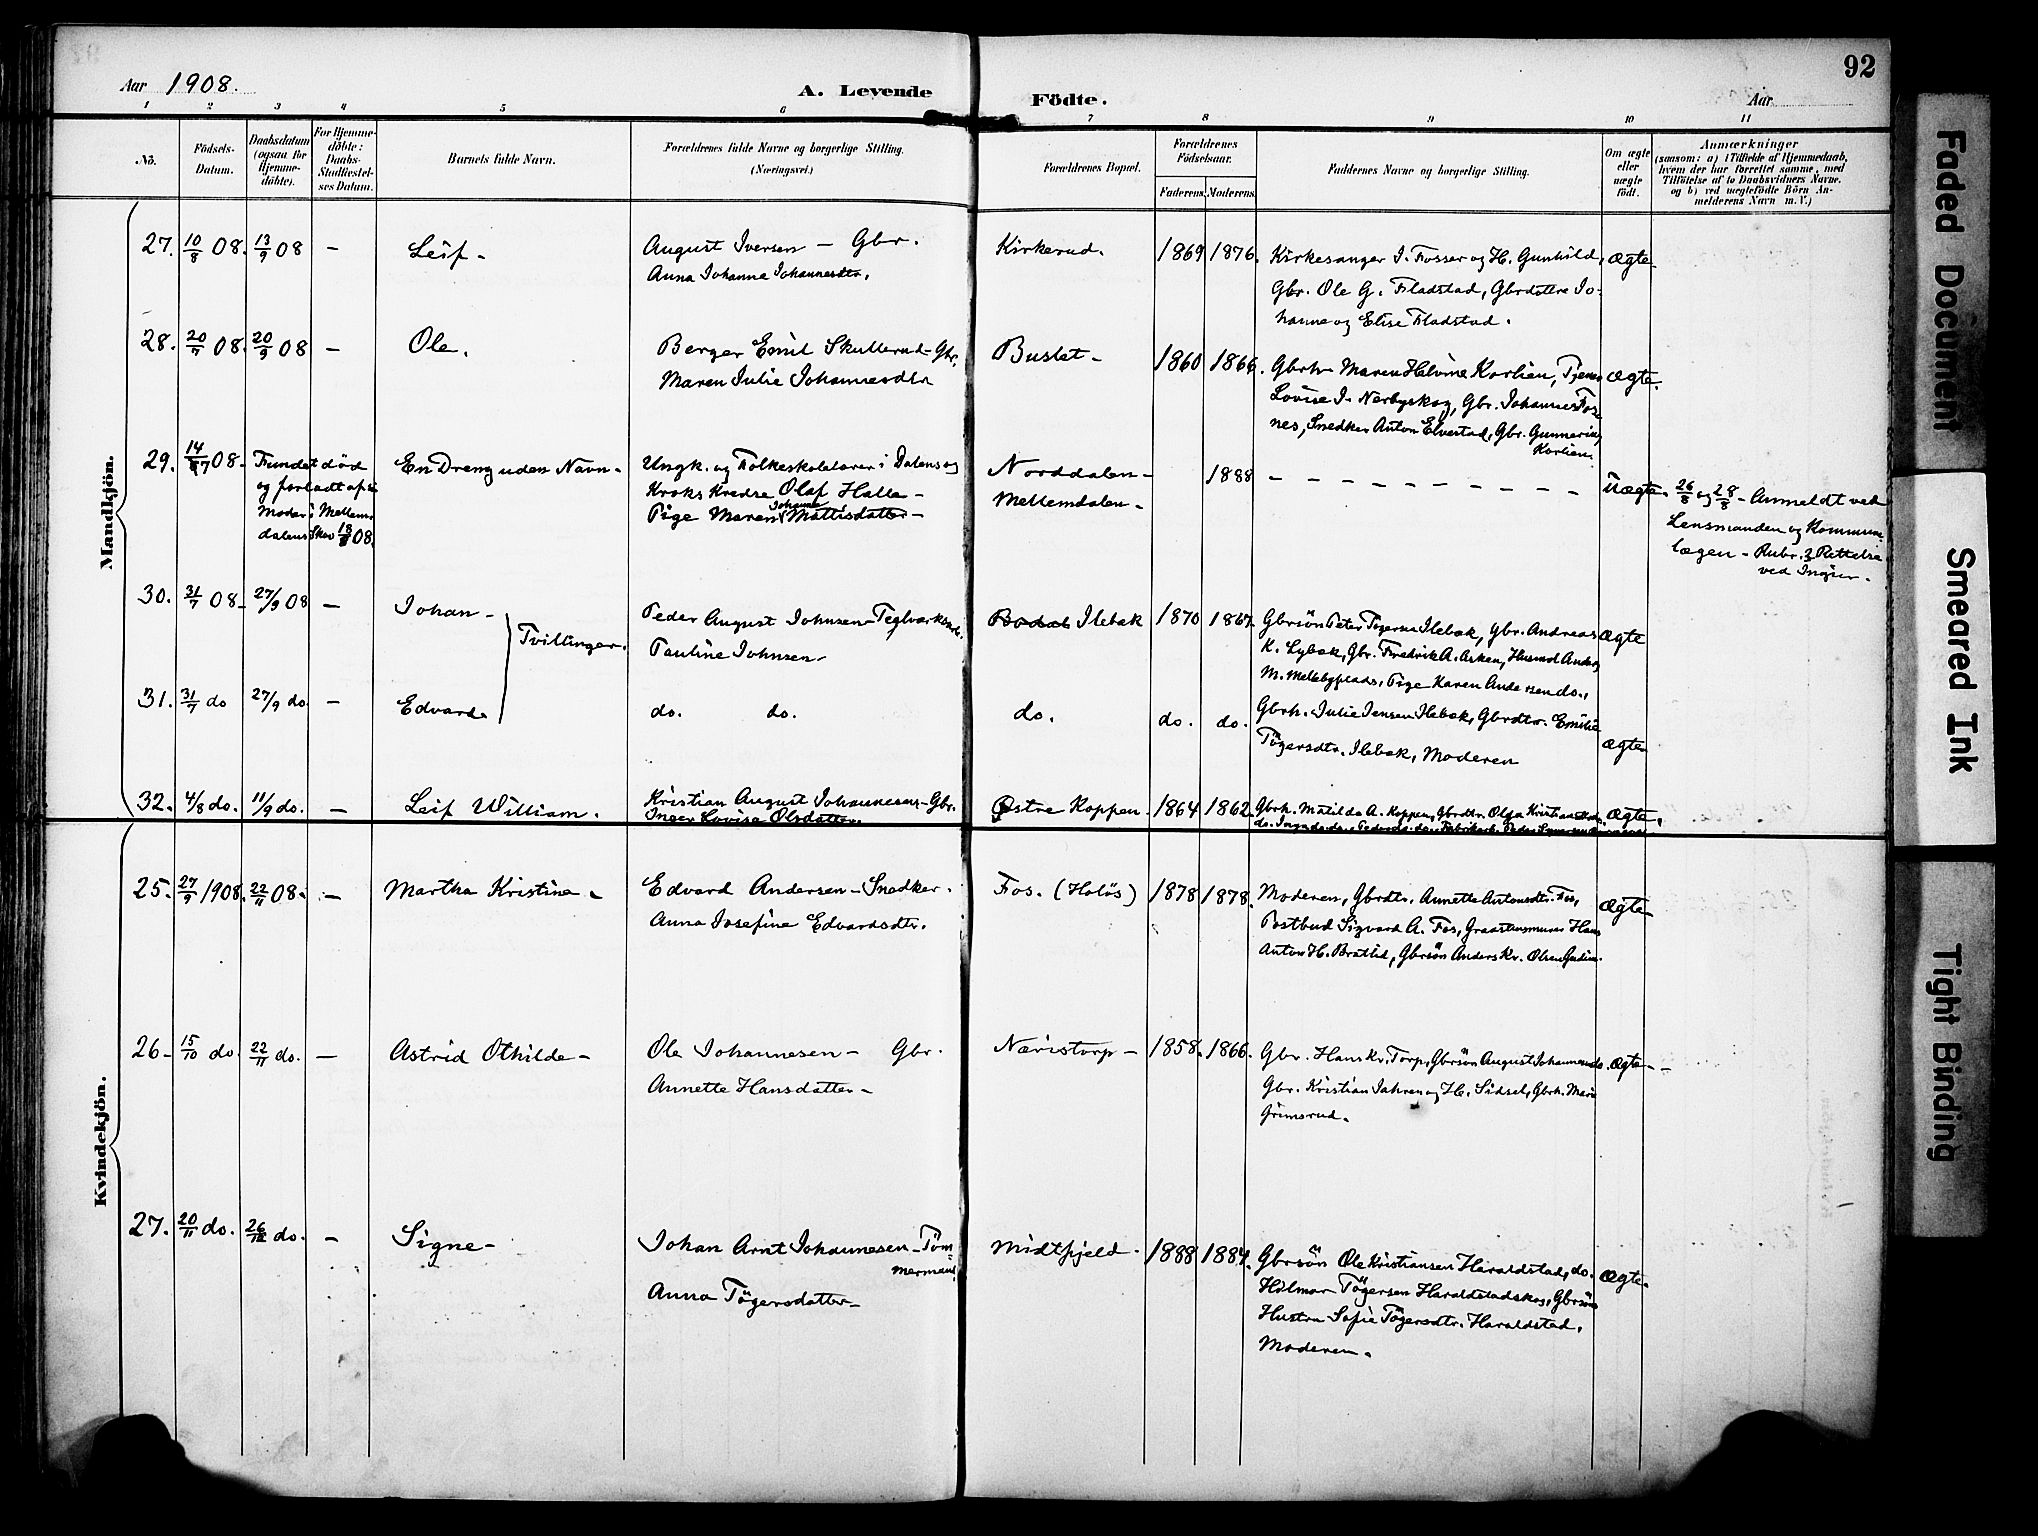 92
Aar 1908.
A. Levende Födte.
Aar
1 2 3 4 5 6 7 8 9 10 11
No.
Födsels-Datum.
Daabsdatum (ogsaa for Hjemme-döbte).
For Hjemme-döbte: Daabs-Stadfæstel-ses Datum.
Barnets fulde Navn.
Forældrenes fulde Navne og borgerlige Stilling. (Næringsvei.)
Forældrenes Bopæl.
Forældrenes Födselsaar.
Faderens. Moderens.
Faddernes Navne og borgerlige Stilling.
Om ægte eller uægte födt.
Anmærkninger
(saasom: a) i Tilfælde af Hjemmedaab,
hvem der har forrettet samme, med
Tilföielse af to Daabsvidners Navne,
og b) ved uægtefödte Börn An-
melderens Navn m. V.)
Mandkjön.
27. 10/8 08. 13/9 08 - Leif - August Iversen - Gbr. Kirkerud. 1869 1876. Kirkesanger I. Fosser og H. Gunhild, ægte.
Anna Johanne Johannesdtr. Gbr. Ole G. Fladstad, Gbrdöttre Jo-
hanne og Elise Fladstad.
28. 20/7 08. 20/9 08 - Ole. Berger Emil Skullerud - Gbr. Buslet - 1860 1866. Gbrh. Maren Helvine Korlien, Tjener ægte.
Maren Julie Johannesdtr Lovise I. Nerbyskog, Gbr. Johannes Fos-
nes, Snedker Anton Elvestad, Gbr. Gunnerius
Korlien.
29. 14/7 08. Fundet död En Dreng uden Navn. Ungk. og Folkeskolelærer i Dalens og Norddalen - 1888 - - - - - - - - - - uægte. 26/8 og 28/8 - Anmeldt ved
og forladt af sin Kroks Kredse Olaf Halle - Mellemdalen - Lensmanden og Kommune-
Moder i Mellem- Pige Maren Johanne Mattisdatter - lægen - Rubr. 3 Rettelse
dalens Skov 18/8 08. ved Ingier.
30. 31/7 08 - 27/9 08 - Johan - Tvillinger. Peder August Johnsen - Teglværksarb. Ilebæk 1870 1867. Gbrsön Peter Tögersen Ilebæk, Gbr. Andreas ægte
Pauline Johnsen - K. Lybæk, Gbr. Fredrik A. Asken, Husmd Anders
M. Mellebyplads, Pige Karen Andersen do.,
31. 31/7 do 27/9 do. - Edvard. do. do. do. do. do. Gbrh. Julie Jensen Ilebæk, Gbrdtr. Emilie
Tögersdtr. Ilebæk, Moderen ægte
32. 4/8 do. 11/9 do. - Leif William. Kristian August Johannesen - Gbr. Østre Koppen 1864 1862. Gbrh. Matilde A. Koppen, Gbrdtr. Olga Kristiansdtr. do. ægte.
Inger Lovise Olsdatter.
Kvindekjön.
25. 27/9 1908. 22/11 08. - Martha Kristine. Edvard Andersen - Snedker. Fos. (Holös) 1878 1878. Moderen, Gbrdtr. Annette Antonsdtr. Fos, ægte
Anna Josefine Edvardsdtr. Postbud Sigvard A. Fos, Graastensmurer Hans
Anton H. Bratlid, Gbrsön Anders Kr. Olsen
26 - 15/10 do. 22/11 do. - Astrid Othilde - Ole Johannesen - Gbr. Næristorp - 1858. 1866. Gbr. Hans Kr. Torp, Gbrsön August Johannesen do. ægte -
Annette Hansdatter - Gbr. Kristian Jahren og H. Sidsel, Gbrh. Mari
Grimsrud.
27. 20/11 do. 26/12 do. - Signe - Johan Arnt Johannesen - Töm- Midtfjeld. 1888 1884. Gbrsön Ole Kristiansen Haraldstad, do. ægte.
mermand Hilmar Tögersen Haraldstadskog, Gbrsöns
Anna Tögersdatter - Hustru Sofie Tögersdtr. Haraldstad,
Moderen.
Faded Document
Smeared Ink
Tight Binding